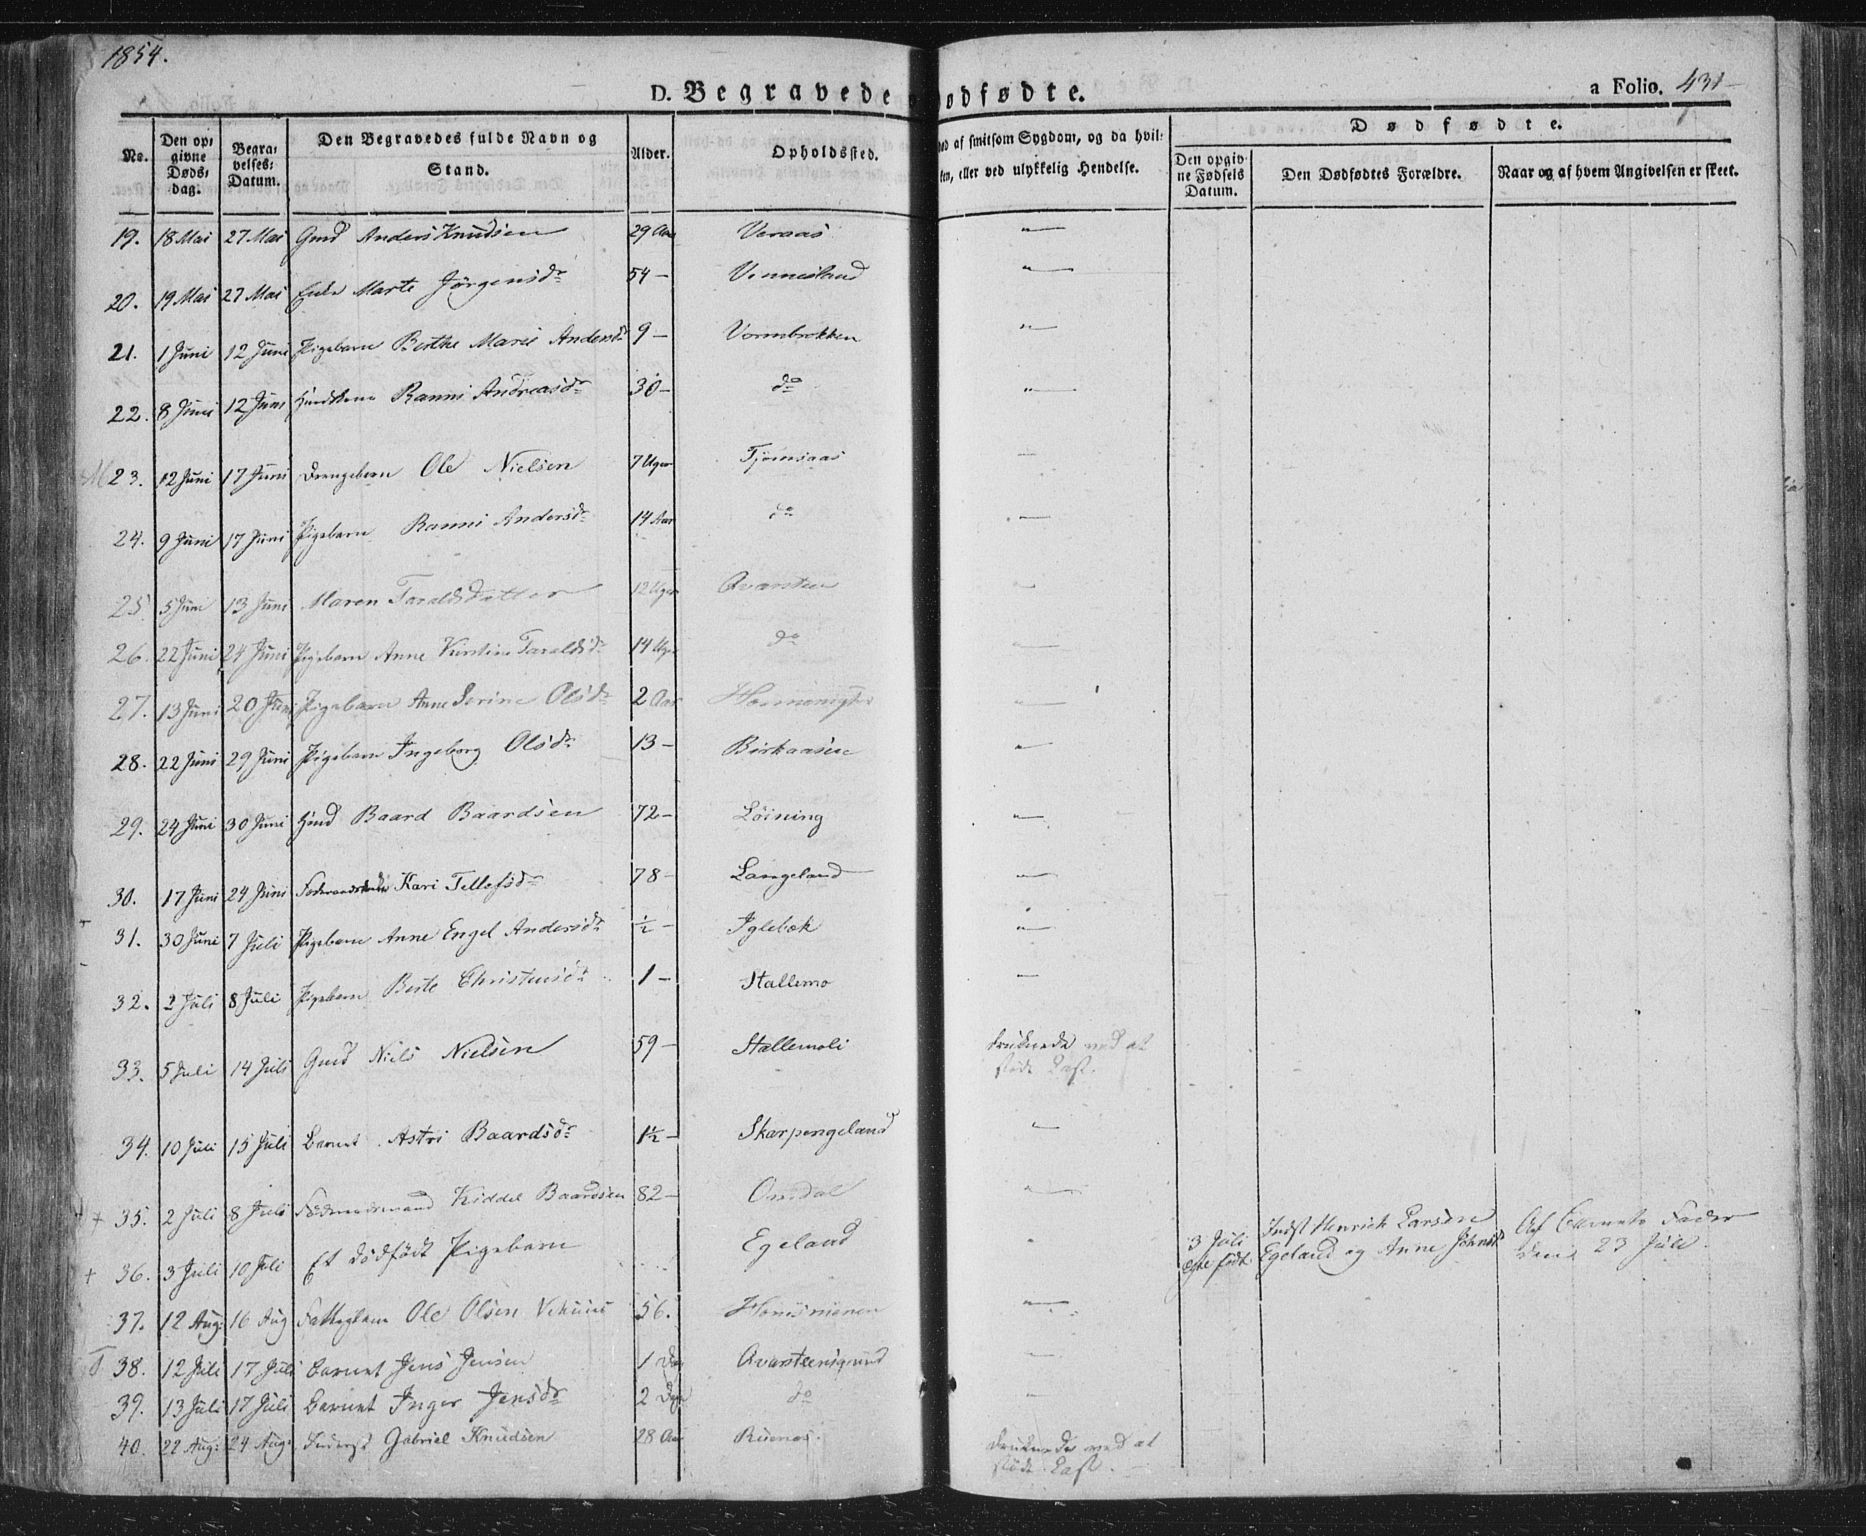 1854.
D. Begravede o
ødfødte.
a Folio. 431
No.
Den op-
givne
Døds-
dag.
Begra-
velses-
Datum.
Den Begravedes fulde Navn og
Stand.
Alder.
Opholdssted.
ød af smitsom Sygdom, og da hvil-
ken, eller ved ulykkelig Hendelse.
Dødfødte.
Den opgiv-
ne Fødsels
Datum.
Den Dødfødtes Forældre.
Naar og af hvem Angivelsen er skeet.
19. 18 Mai 27 Mai Gmd Anders Knudsen 29 Aar Veraas —
20. 19 Mai 27 Mai Enke Marte Jörgensdr 54 — Vennesland —
21. 1 Juni 12 Juni Pigebarn Berthe Marie Andersdr 9 — Vormbrokken —
22. 8 Juni 12 Juni Ranni Andreasdr 30 — do —
23. 12 Juni 17 Juni Drengebarn Ole Nielsen 7 Uger Tjomsaas —
24. 9 Juni 17 Juni Pigebarn Ranni Andersdr 14 Aar do —
25. 5 Juni 13 Juni Maren Taraldsdatter 12 Uger Qvarsteen —
26. 22 Juni 24 Juni Pigebarn Anne Kirstine Taraldsdr 14 Uger do —
27. 13 Juni 20 Juni Pigebarn Anne Serine Olsdr 2 Aar —
28. 22 Juni 29 Juni Pigebarn Ingeborg Olsdr 13 — Birkaasen —
29. 24 Juni 30 Juni Baard Baardsen 72 — Löining —
30. 17 Juni 24 Juni Kari Tellefsdr 78 — Langeland —
31. 30 Juni 7 Juli Pigebarn Anne Engel Andersdr ½ — Iglebæk —
32. 2 Juli 8 Juli Pigebarn Berte Christensdr 1 — Stallemo —
33. 5 Juli 14 Juli Gmd Niels Nielsen 59 — Stallemoli druknede ved at
fløde Last.
34. 10 Juli 15 Juli Barnet Astri Baardsdr 1½ — Skarpengeland —
+ 35. 2 Juli 8 Juli Föderaadsmand Kiddel Baardsen 82 — Omdal —
+ 36. 3 Juli 10 Juli Et dödfödt Pigebarn Egeland
3 Juli
Indst Henrich Larsen
Egeland og Anne Johnsdr
Af Barnets Fader
den 23 Juli.
37. 12 Aug: 16 Aug Ole Olsen 56. —
38. 12 Juli 17 Juli Barnet Jens Jensen 1 Dag Qvarsteensgrund —
39. 13 Juli 17 Juli Barnet Inger Jensdr 2 Dage do —
40. 22 Aug: 24 Aug: Gabriel Knudsen 28 Aar druknede ved at
fløde Last. —